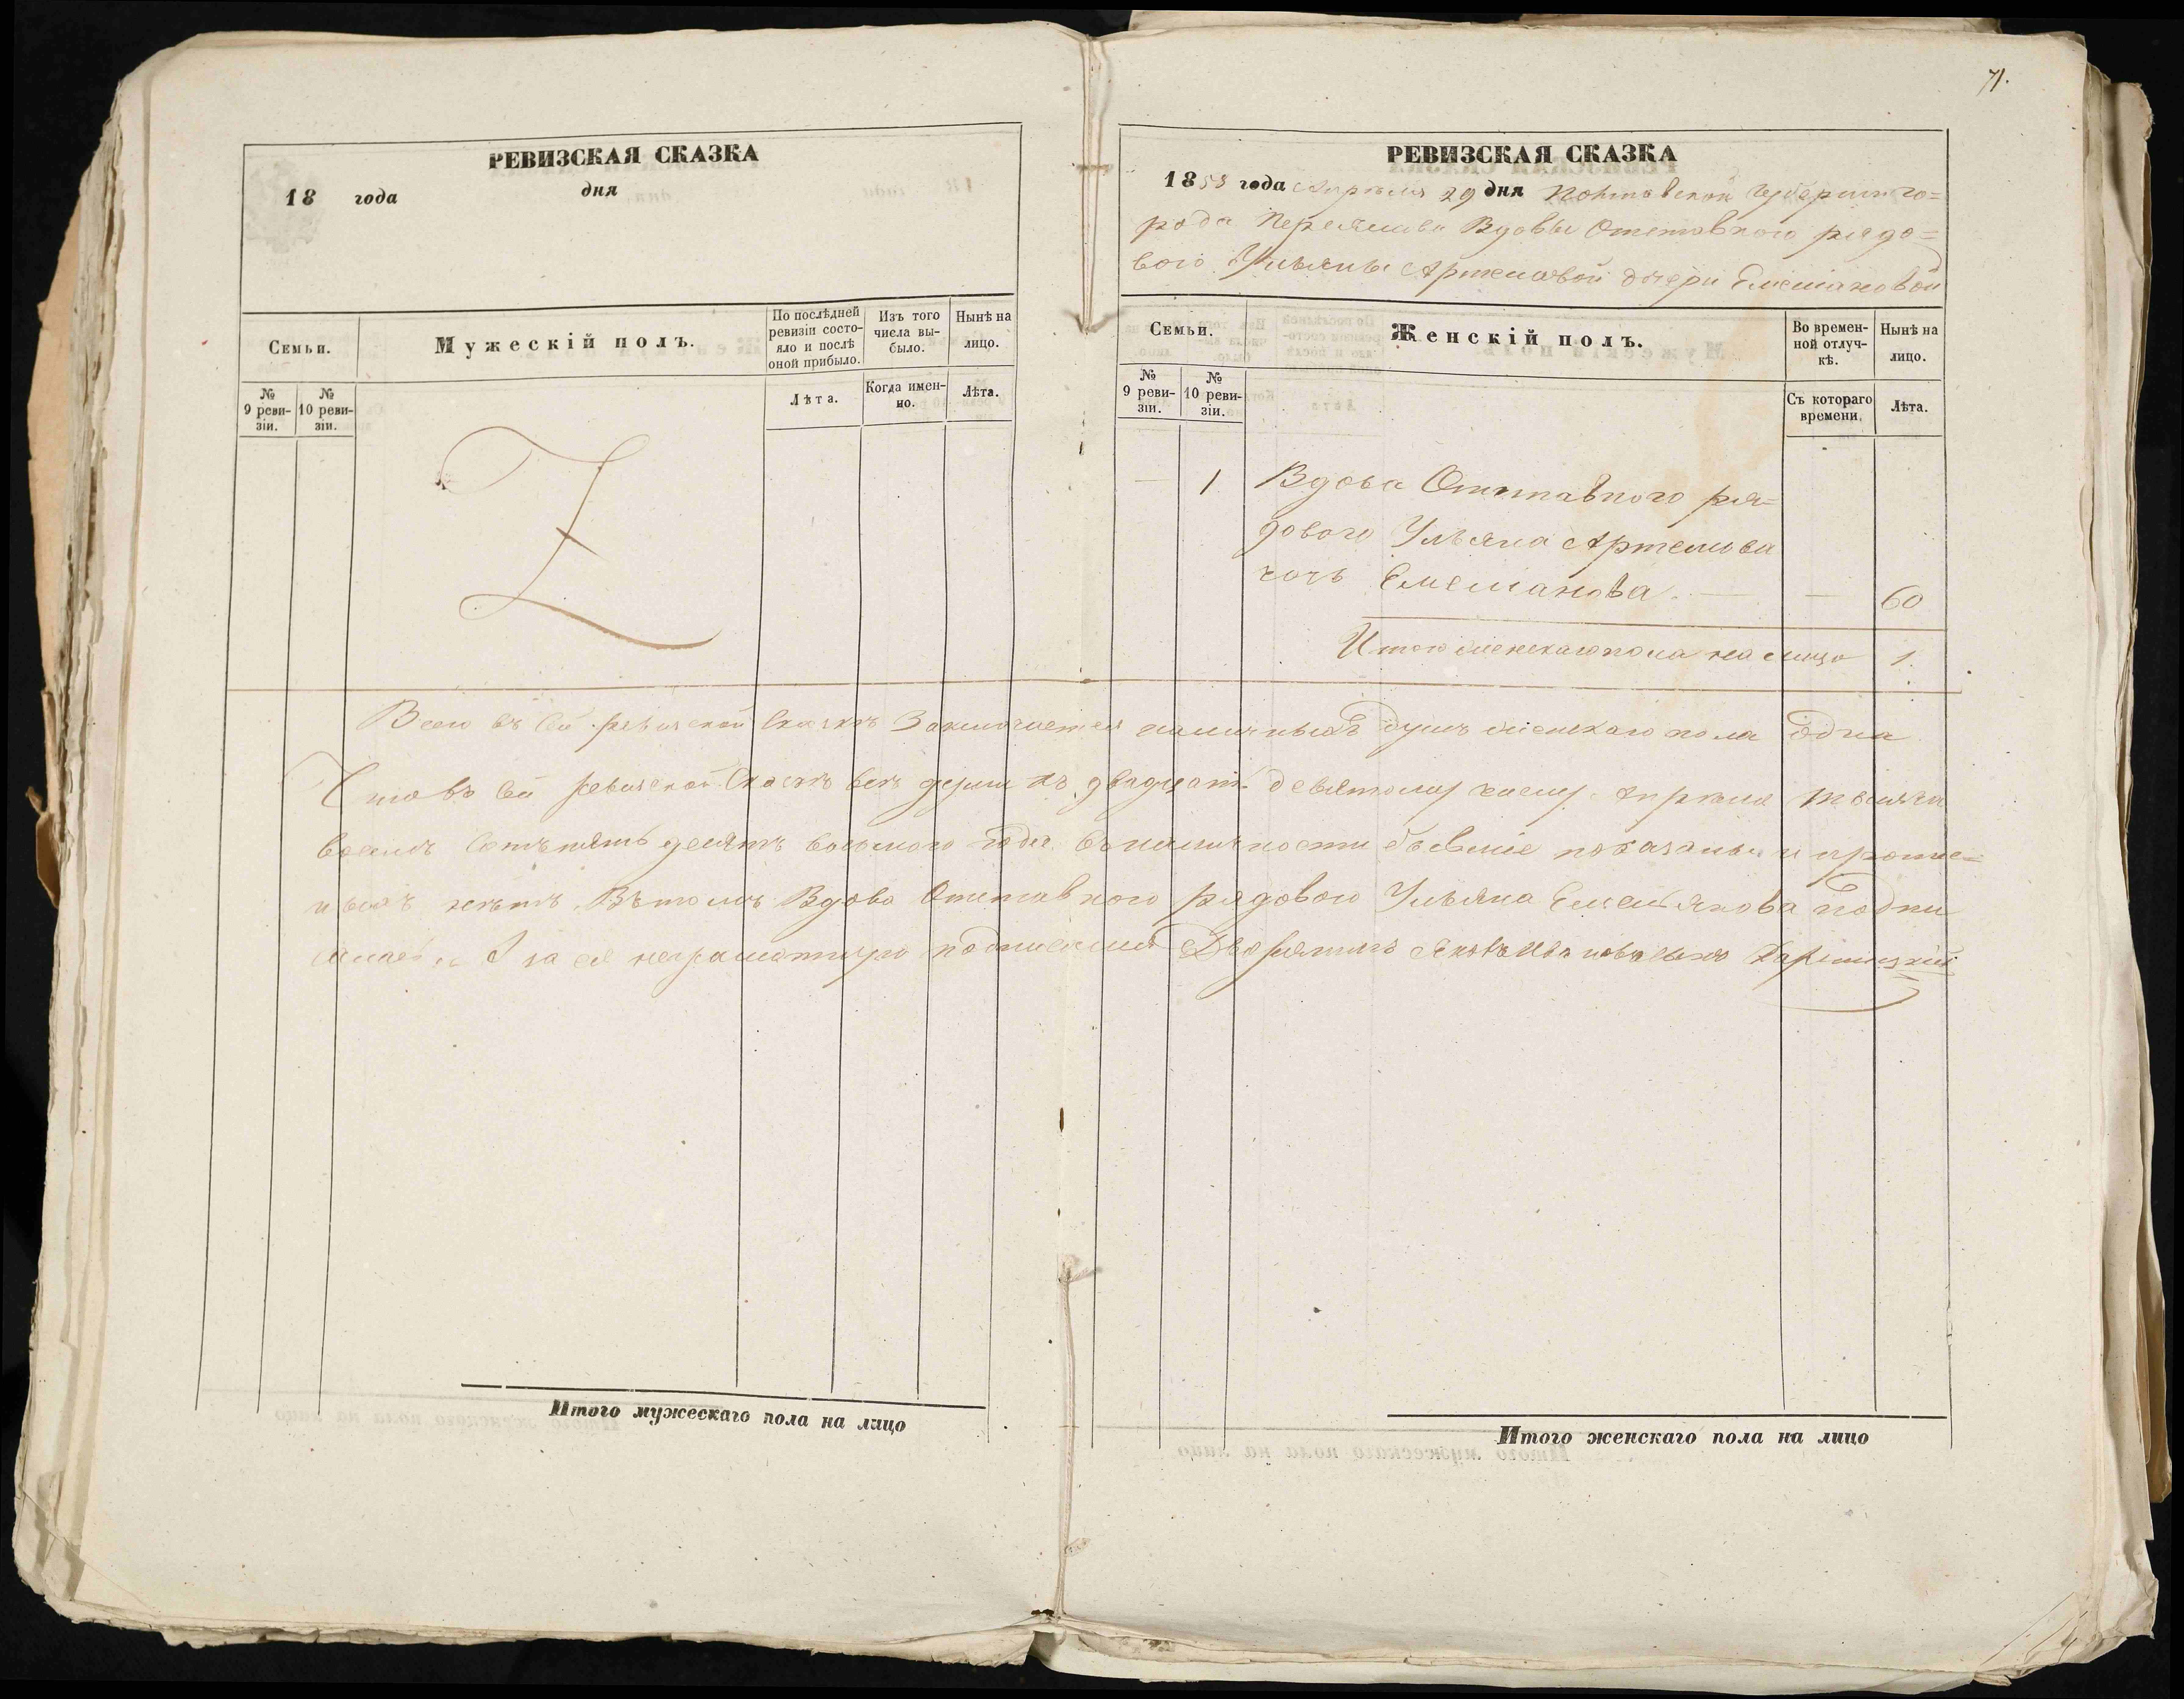 71.
РЕВИЗСКАЯ СКАЗКА
18 года дня
Семьи.
Мужескій полъ.
По послѣдней ревизіи состояло и послѣ оной прибыло.
Изъ того числа выбыло.
Нынѣ на лицо.
№ 9 ревизіи.
№ 10 ревизіи.
Лѣта.
Когда именно.
Лѣта.
Итого мужескаго пола на лицо
РЕВИЗСКАЯ СКАЗКА
1858 года Апрѣля 29 дня Полтавской Губерніи го=
рода Переяслава Вдовы Отставного рядо=
вого Ульяны Артемовой дочери Емельяновой
Семьи.
Женскій полъ.
Во временной отлучкѣ.
Нынѣ на лицо.
№ 9 ревизіи.
№ 10 ревизіи.
Съ котораго времени.
Лѣта.
— 1 Вдова Отставного ря=
дового Ульяна Артемова
дочь Емельянова. — — 60
Итого женскаго пола на лицо 1.
Всего въ сей ревизской Сказкѣ Заключается наличныхъ душъ женскаго пола одна
Что въ сей ревизской Сказкѣ всѣ души къ двадцать девятому числу Апрѣля тысяча
восемь сотъ пятьдесятъ восьмого года въ наличности бывшіе показаны и прописныхъ нѣтъ Въ томъ Вдова Отставного рядового Ульяна Емельянова подпи
И за её неграмотную подписался Дворянинъ Яковъ Ивановъ сынъ
Итого женскаго пола на лицо